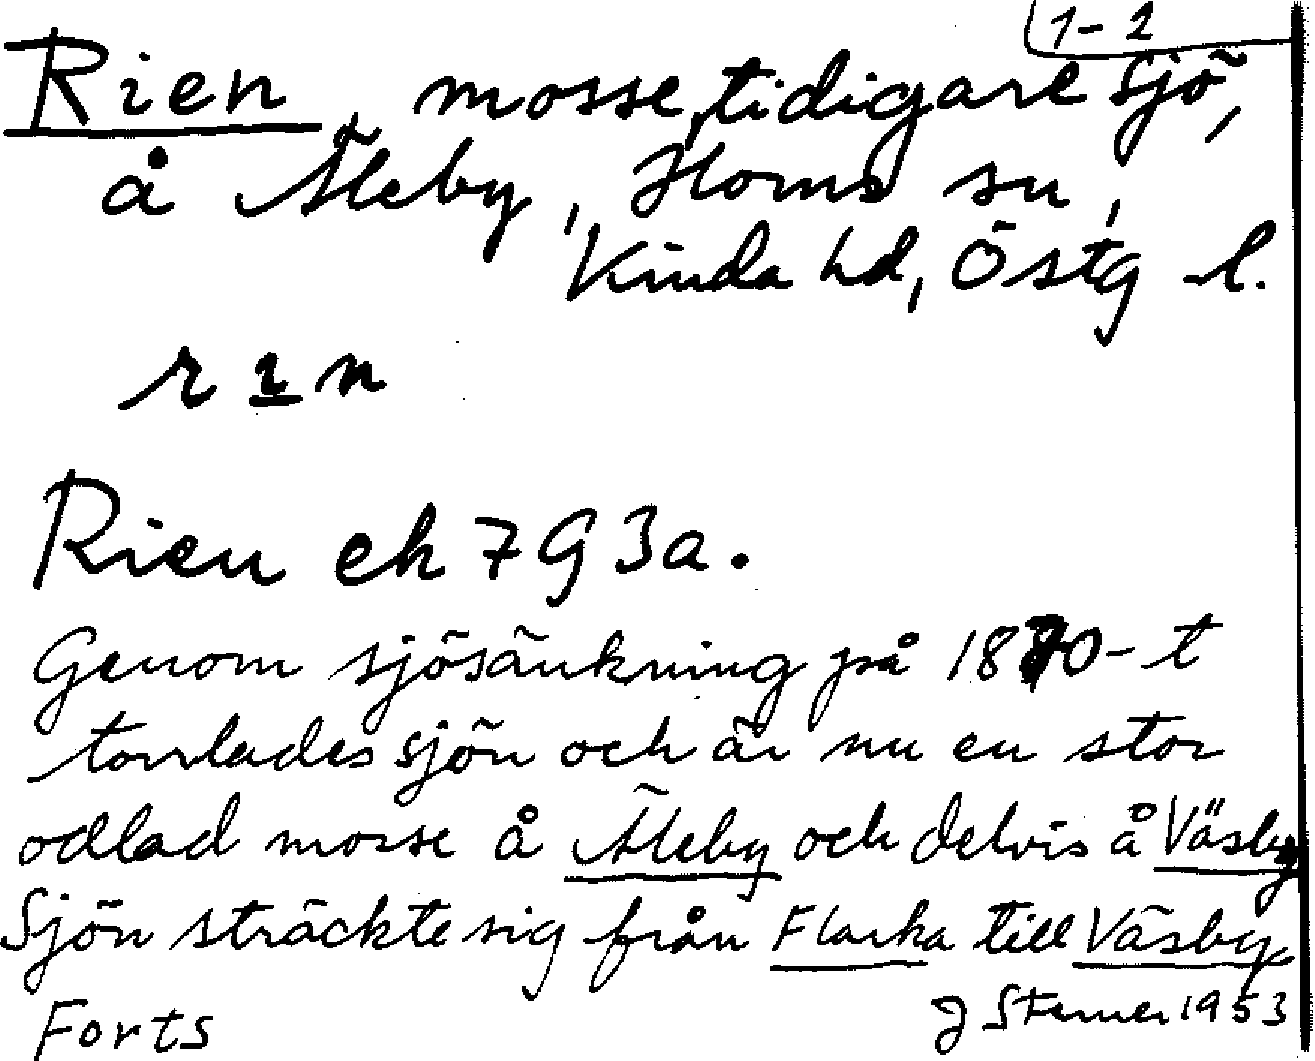 1-2
Rien, mosse, tidigare sjö,
å Åleby, Horns sn,
Kinda hd, Östg l.
r ı n
Rien ek 7G 3a.
Genom sjösänkning på 1870-t
torrlades sjön och är nu en stor
odlad mosse å Äleby och delvis å Väsby
Sjön sträckte sig från Flarka till Väsby.
Forts
J Sterner 1953